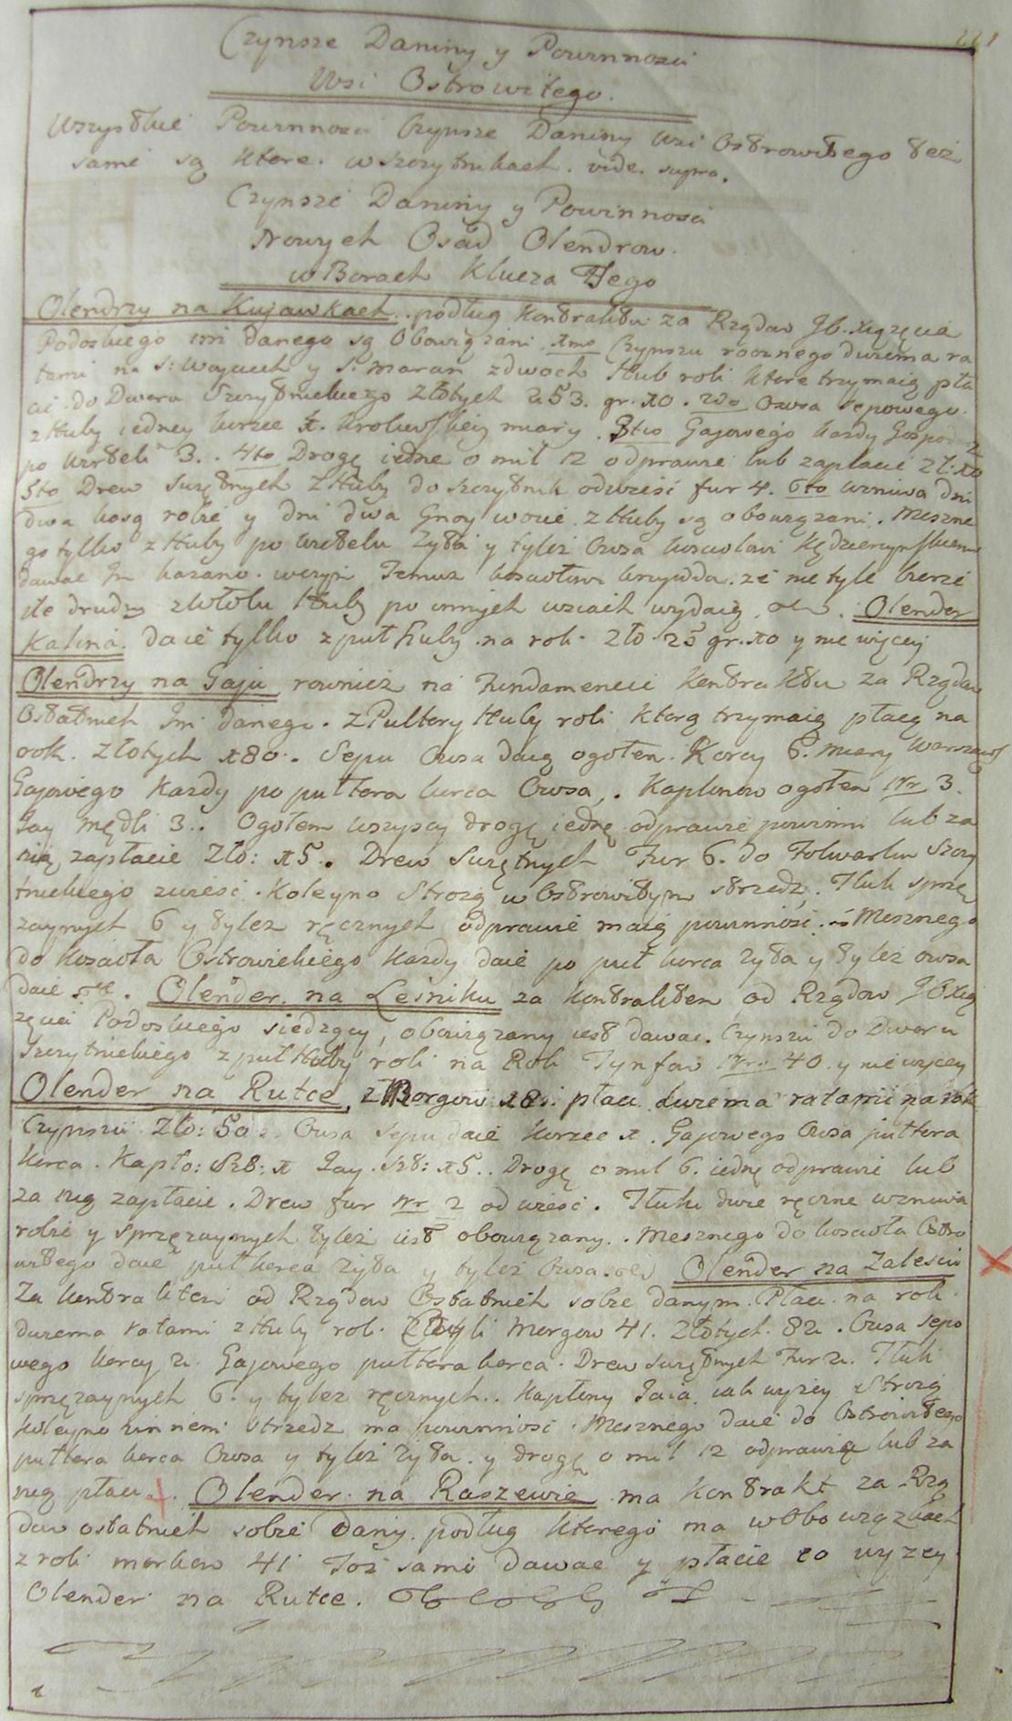 Czynsze Daniny y Powinnosci
Wsi Ostrowitego.
Wszystkie Powinnosci Czynsze Daniny wsi Ostrowitego też
same są ktore w Szczytnikach. vide. supra.
Czynsze Daniny y Powinnosci
Nowych Osad Olendrow
w Borach Klucza Tego
Olendrzy na Kujawkach. podług Kontraktu za Rządow JO. Xiążęcia
Podoskiego imi danego są Obowiązani 1mo Czynszu rocznego dwiema ra
tami na S: Woyciech y S: Marcin z dwoch Hub roli ktore trzymaią pła
cić do Dworu Szczytnickiego Złotych 253. gr. 10. 2do Owsa sepowego.
z Huby iedney korzec 1. krolewskiey miary. 3tio Gajowego kazdy Gospodarz
po wierteli 3. 4to Drogę iedne o mil 12 odprawić lub zapłacić Zł. 10
5to Drew sążnych z Huby do Szczytnik odwieść fur 4. 6to w zniwa dni
dwa kosą robić y dni dwa Gnoy wozić z Huby są obowiązani. Meszne
go tylko z Huby po wiertelu Zyta y tyleż Owsa kosciołowi
dawać Im kazano. wszym Iemuz kosciołowi krzywda. ze nie tyle bierze
ile drudzy z włoki Huby po innych wsiach wydaią. Olender
Kalina. daie tylko z puł huby na rok Zło 25 gr. 10 y nie więcey
Olendrzy na Gaju rownież na Fundamencie Kontraktu za Rządow
Ostatnich Im danego. z Pułtory Huby roli ktorą trzymaią płacą na
rok. Złotych 180. Sepu Owsa daią ogołem. Korcy 6. miary Warszaws
Gajowego Kazdy po pułtora korca Owsa,. Kapłonow ogołem Nr 3.
Jay mędli 3.. Ogołem wszyscy drogę iednę odprawić powinni lub za
nią zapłacić Zło: 15. Drew sążnych Fur 6. do Folwarku Szczy
tnickiego zwieść. Koleyno Strozą w Ostrowitym strzedz. Tłuk sprzę
zaynych 6 y tyleż ręcznych odprawić maią powinność. Mesznego
do Koscioła Ostrowickiego kazdy daie po puł korca zyta y tyleż owsa
daie. Olender. na Leśniku za Kontraktem od Rządow JO Xią
zęcia Podoskiego siedzący, obowiązany iest dawac. Czynszu do Dworu
Szczytnickiego z puł Huby roli na Rok Tynfow Nro 40. y nie więcey
Olender na Rutce z Morgow 28: płaci dwiema ratami na rok
Czynszu Zło: 50. Owsa Sepu daie korzec 1. Gajowego Owsa pułtora
korca. Kapło: Sz8: 1 Jay. Sz8: 15.. Drogę o mil 6. iednę odprawić lub
za nią zapłacić. Drew fur Nr 2 odwieść. Tłuki dwie ręczne w zniwa
robić y sprzęzaynych tyleż iest obowiązany. Mesznego do koscioła Ostro
witego daie puł korca Zyta y tyleż Owsa. Olender na Zalesiu
Za kontraktem od Rządow Ostatnich sobie danym. Płaci na rok
dwiema ratami z Huby roli Czyli Morgow 41. Złotych. 82. Owsa Sepo
wego korcy 2. Gajowego pułtora korca. Drew sążnych Fur 2. Tłuk
sprzęzaynych 6. y tyleż ręcznych.. Kapłony Jaia iak wyzey Strozą
koleyno z innemi Strzedz ma powinność. Mesznego daie do Ostrowitego
pułtora korca Owsa y tyleż Zyta. y drogę o mil 12 odprawia lub za
nią płaci. Olender na Raszewie ma Kontrakt za Rzą
dow ostatnich sobie Dany. podług ktorego ma w Obowiązkach
z roli morgow 41 Toż samo dawac y płacić co wyzey
Olender na Rutce.